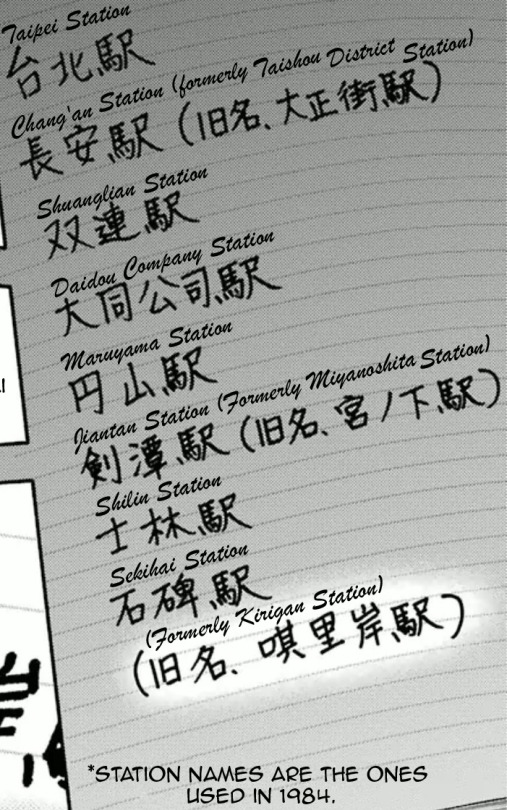 Taipei Station
台北駅
Chang'an Station (formerly Taishou District Station)
長安駅(旧名、大正街駅)
Shuanglian Station
双連駅
Daidou Company Station
大同公司駅
Maruyama Station
円山駅
Jiantan Station (Formerly Miyanoshita Station)
剣潭駅(旧名、宮ノ下駅)
Shilin Station
士林駅
Sekihai Station
石碑駅
(Formerly Kirigan Station)
(旧名、唭里岸駅)
*STATION NAMES ARE THE ONES
USED IN 1984.